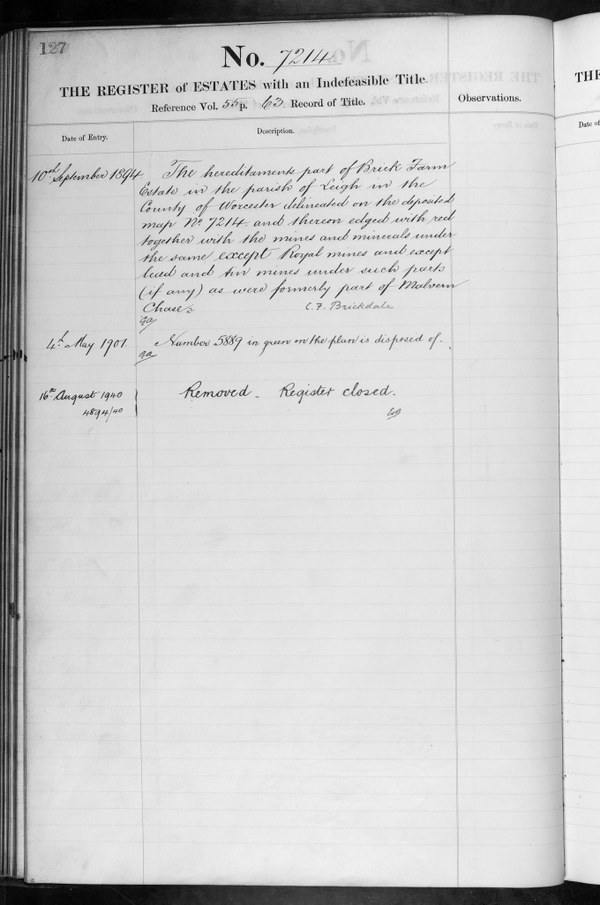 127
No. 7214
THE REGISTER of ESTATES with an Indefeasible Title.
Reference Vol. 55 p. 63 Record of Title.
Observations.
Date of Entry.
Description.
10th September 1894
The hereditaments part of Brick Farm
Estate in the parish of Leigh in the
County of Worcester delineated on the deposited
map No 7214 and thereon edged with red
together with the mines and minerals under
the same except Royal mines and except
lead and tin mines under such parts
(if any) as were formerly part of Malvern
Chase.
C. F. Brickdale
4th May 1901
Number 5889 in green on the plan is disposed of.
16th August 1940
4894/40
Removed - Register closed.
THE
Date of